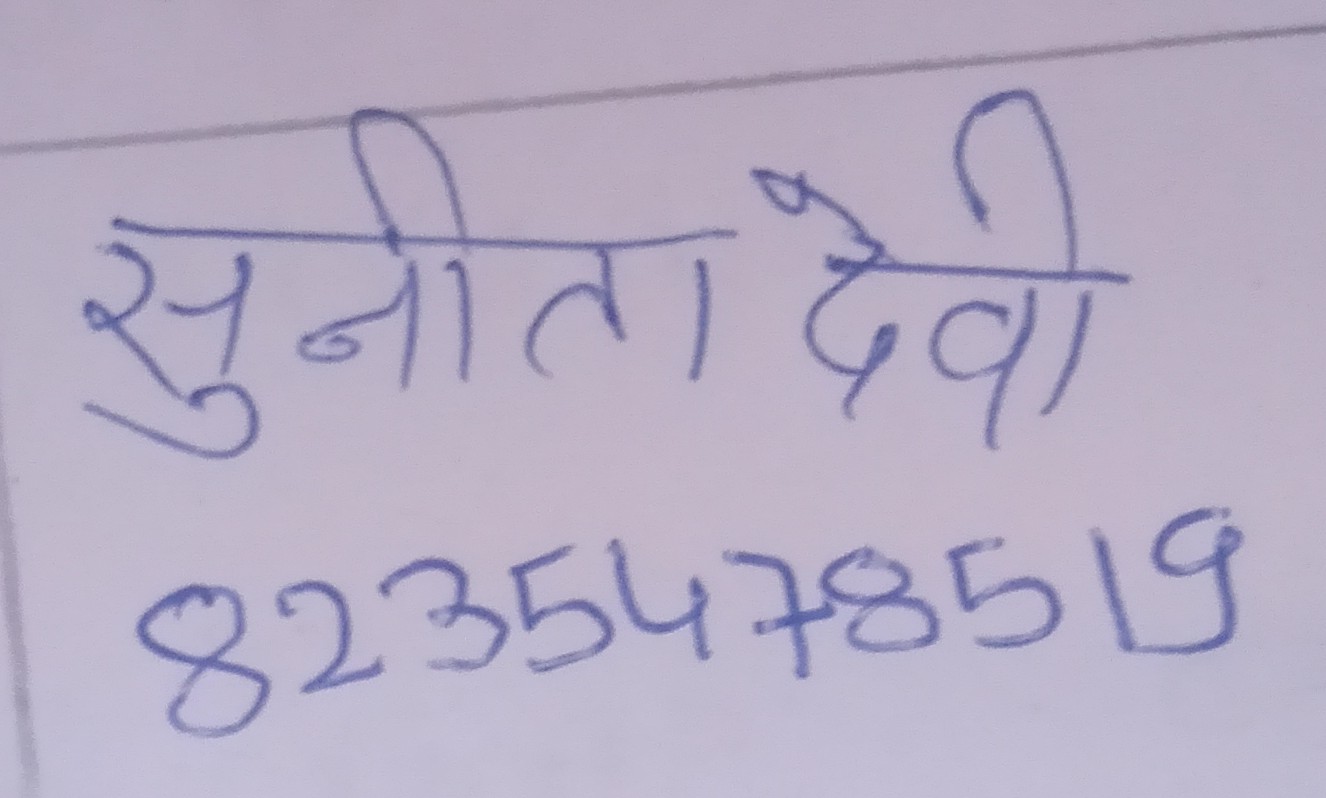 सुनीता देवी
8235478519